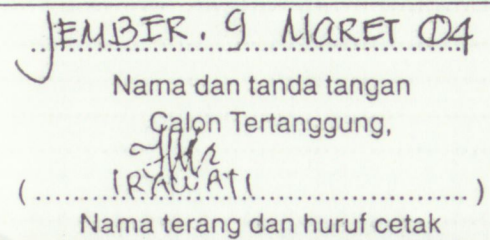 JEMBER. 9 MARET 04
Nama dan tanda tangan
Calon Tertanggung,
(IRAWATI)
Nama terang dan huruf cetak